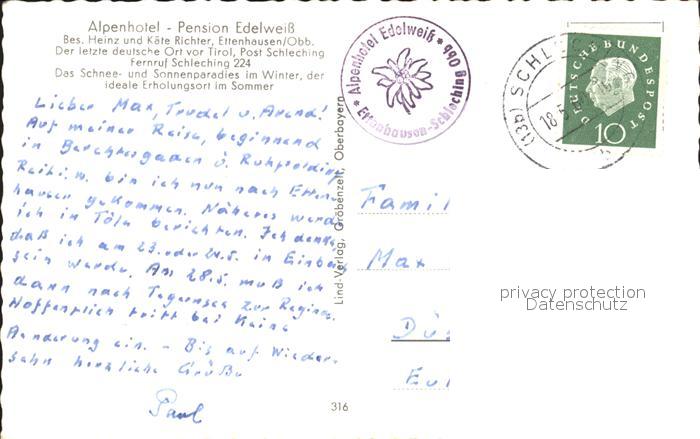 Alpenhotel - Pension Edelweiß
Bes. Heinz und Käte Richter, Ettenhausen/Obb.
Der letzte deutsche Ort vor Tirol, Post Schleching
Fernruf Schleching 224
Das Schnee- und Sonnenparadies im Winter, der
ideale Erholungsort im Sommer
Lieber Max, Trudel u. Arend!
Auf meiner Reise, beginnend
in Berchtesgaden ü. Ruhpolding
Reit i. W. bin ich nun nach Etten-
hausen gekommen. Näheres werde
ich in Tölz berichten. Ich denke,
daß ich am 23. oder 24.5. in
sein werde. Am 28.5. muß ich
dann nach Tegernsee zur
Hoffentlich tritt bei keine
Aenderung ein. - Bis auf Wieder-
sehn herzliche Grüße
Paul
Lind-Verlag, Gröbenzell, Oberbayern
316
* Alpenhotel Edelweiß * 990
Ettenhausen-Schleching
(13b) SCHLE
18.5.
DEUTSCHE BUNDESPOST
10
Famil
Max
Dü
privacy protection
Datenschutz